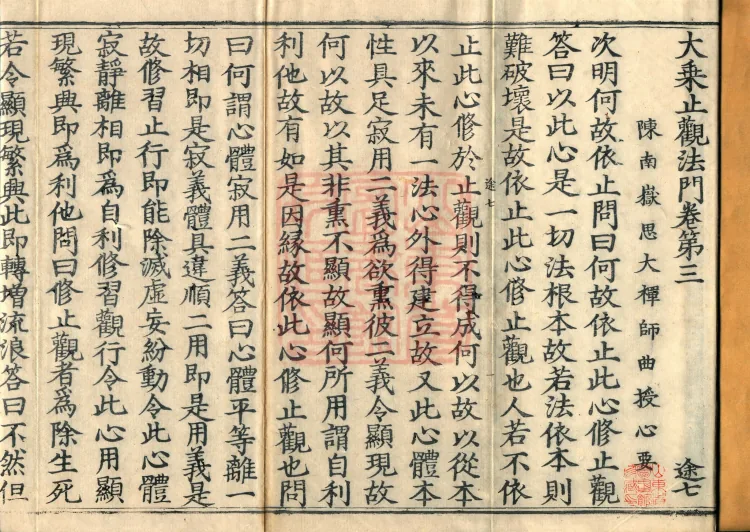 大乘止觀法門卷第三
途七
陳南嶽思大禪師曲授心要
次明何故依止問曰何故依止此心修止觀
答曰以此心是一切法根本故若法依本則
難破壞是故依止此心修止觀也人若不依
途七
止此心修於止觀則不得成何以故以從本
以來未有一法心外得建立故又此心體本
性具足寂用二義爲欲熏彼二義令顯現故
何以故以其非熏不顯故顯何所用謂自利
利他故有如是因緣故依此心修止觀也問
曰何謂心體寂用二義答曰心體平等離一
切相即是寂義體具違順二用即是用義是
故修習止行即能除滅虛妄紛動令此心體
寂靜離相即爲自利修習觀行令此心用顯
現繁興即爲利他問曰修止觀者爲除生死
若令顯現繁興此即轉增流浪答曰不然但